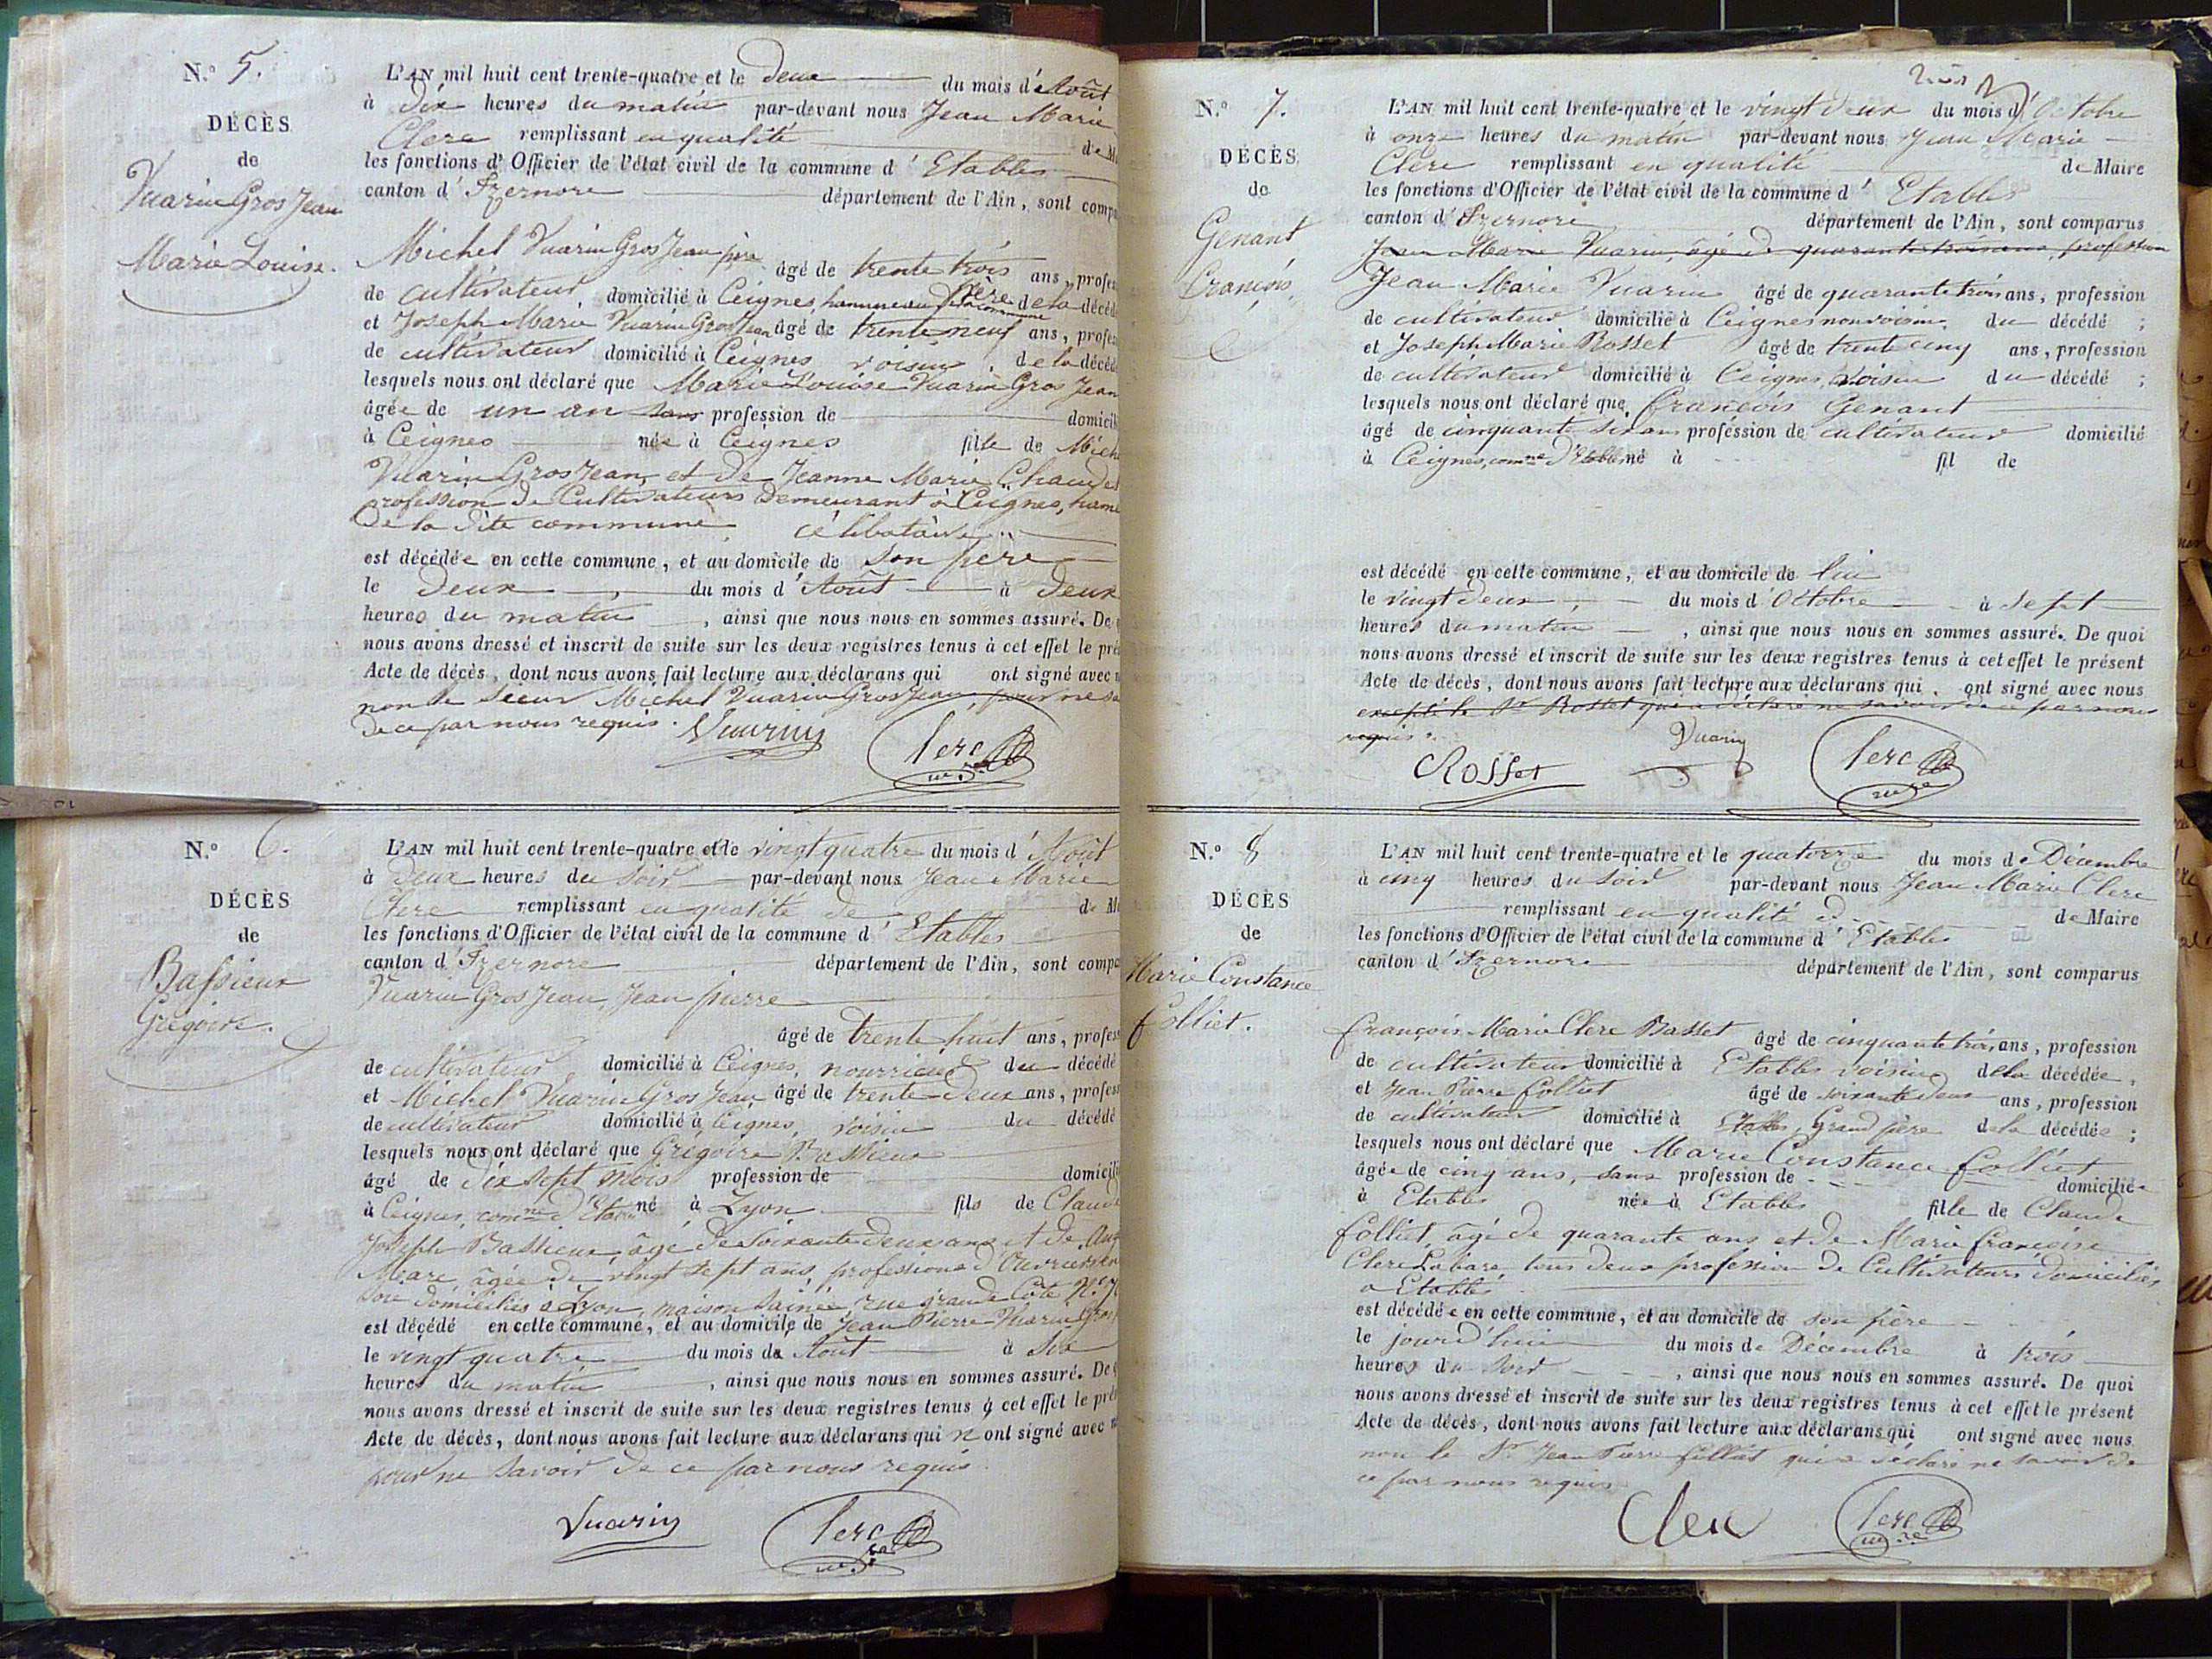 N.o 5.
DÉCÈS
de
Vuarin Gros Jean
Marie Louise.
L'AN mil huit cent trente-quatre et le deux du mois d'Août
à dix heures du matin par-devant nous Jean Marie
Clerc remplissant en qualité de M
les fonctions d'Officier de l'état civil de la commune d'Etables
canton d'Izernore département de l'Ain, sont comp
Michel Vuarin Gros Jean père âgé de trente trois ans, profes
de cultivateur domicilié à Ceignes, hammeau de la commune père de la décéd
et Joseph Marie Vuarin Gros Jean âgé de trente neuf ans, profes
de cultivateur domicilié à Ceignes voisin de la décéd
lesquels nous ont déclaré que Marie Louise Vuarin Gros Jean
âgée de un an sans profession de domicili
à Ceignes née à Ceignes fille de Mich
Vuarin Gros Jean, et de Jeanne Marie Chaudet
profession de Cultivateurs demeurant à Ceignes, hame
de la dite commune célibataire
est décédée en cette commune, et au domicile de son père
le deux du mois d'Août à deux
heures du matin, ainsi que nous nous en sommes assuré. De
nous avons dressé et inscrit de suite sur les deux registres tenus à cet effet le pré
Acte de décès, dont nous avons fait lecture aux déclarans qui ont signé avec n
non le sieur Michel Vuarin Gros Jean, pour ne sa
de ce par nous requis.
Vuarin
Clerc
N.o 6.
DÉCÈS
de
Bassieux
Grégoire.
L'AN mil huit cent trente-quatre et le vingt quatre du mois d'Août
à deux heures du soir par-devant nous Jean Marie
Clerc remplissant en qualité de de M
les fonctions d'Officier de l'état civil de la commune d'Etables
canton d'Izernore département de l'Ain, sont comp
Vuarin Gros Jean, Jean pierre
âgé de trente huit ans, profess
de cultivateur domicilié à Ceignes, nourricier du décédé
et Michel Vuarin Gros Jean âgé de trente-deux ans, profess
de cultivateur domicilié à Ceignes, voisin du décédé
lesquels nous ont déclaré que Grégoire Bassieux
âgé de dix sept mois profession de domicili
à Ceignes, comne d'Etab né à Lyon fils de Claude
Joseph Bassieux âgé de soixante deux ans et de
Mare, âgée de vingt sept ans, professions d'Ouvriers en
soie domiciliés à Lyon, maison Sainée, rue grande Côte N.o
est décédé en cette commune, et au domicile de Jean Pierre Vuarin Gros
le vingt quatre du mois de Août à six
heures du matin, ainsi que nous nous en sommes assuré. De
nous avons dressé et inscrit de suite sur les deux registres tenus à cet effet le pré
Acte de décès, dont nous avons fait lecture aux déclarans qui n'ont signé avec n
pour ne savoir de ce par nous requis.
Vuarin
Clerc
N.o 7.
DÉCÈS
de
Genant
François.
L'AN mil huit cent trente-quatre et le vingt deux du mois d'Octobre
à onze heures du matin par-devant nous Jean Marie
Clerc remplissant en qualité de Maire
les fonctions d'Officier de l'état civil de la commune d'Etables
canton d'Izernore département de l'Ain, sont comparus
Jean Marie Vuarin, âgé de quarante trois ans, profession
Jean Marie Vuarin âgé de quarante trois ans, profession
de cultivateur domicilié à Ceignes non voisin du décédé ;
et Joseph Marie Rosset âgé de trente cinq ans, profession
de cultivateur domicilié à Ceignes, voisin du décédé ;
lesquels nous ont déclaré que François Genant
âgé de cinquante six ans profession de cultivateur domicilié
à Ceignes, comne d'Etables né à fil de
est décédé en cette commune, et au domicile de lui
le vingt deux, du mois d'Octobre à sept
heures du matin, ainsi que nous nous en sommes assuré. De quoi
nous avons dressé et inscrit de suite sur les deux registres tenus à cet effet le présent
Acte de décès, dont nous avons fait lecture aux déclarans qui ont signé avec nous
excepté le Sr Rosset qui a déclaré ne savoir de ce par nous
requis.
Rosset
Vuarin
Clerc
N.o 8
DÉCÈS
de
Marie Constance
Colliet.
L'AN mil huit cent trente-quatre et le quatorze du mois de Décembre
à cinq heures du soir par-devant nous Jean Marie Clerc
remplissant en qualité d de Maire
les fonctions d'Officier de l'état civil de la commune d'Etables
canton d'Izernore département de l'Ain, sont comparus
François Marie Clerc Basset âgé de cinquante trois ans, profession
de cultivateur domicilié à Etables voisin de la décédée,
et Jean Pierre Colliet âgé de soixante deux ans, profession
de cultivateur domicilié à Etables, Grand père de la décédée ;
lesquels nous ont déclaré que Marie Constance Colliet
âgée de cinq ans, sans profession de domiciliée
à Etables née à Etables fille de Claude
Colliet, âgé de quarante ans et de Marie Françoise
Clerc Labare tous deux profession de Cultivateurs domiciliés
à Etables
est décédée en cette commune, et au domicile de son père
le jourd'hui du mois de Décembre à trois
heures du soir, ainsi que nous nous en sommes assuré. De quoi
nous avons dressé et inscrit de suite sur les deux registres tenus à cet effet le présent
Acte de décès, dont nous avons fait lecture aux déclarans qui ont signé avec nous
non le Sr Jean Pierre Colliet qui a déclaré ne savoir de
ce par nous requis
Clerc
Clerc